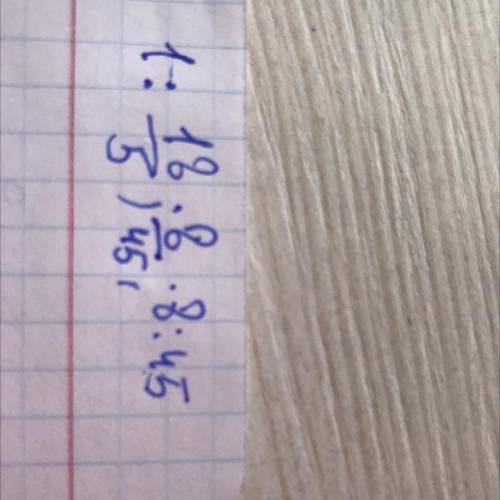 1: 18/5 ; 8/45 ; 8:45